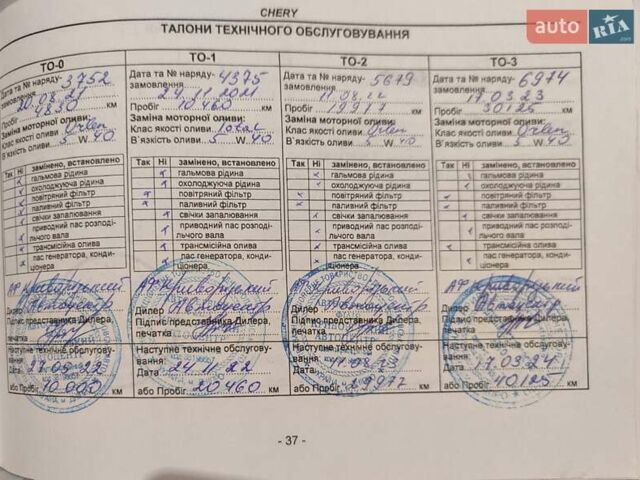 CHERY
auto RIA.com
ТАЛОНИ ТЕХНІЧНОГО ОБСЛУГОВУВАННЯ
ТО-0
Дата та № наряду- 3752
замовлення
Пробіг 4850 км
Заміна моторної оливи:
Клас якості оливи Orlen
В`язкість оливи 5 W 40
Так Ні замінено, встановлено
гальмова рідина
охолоджуюча рідина
повітряний фільтр
паливний фільтр
свічки запалювання
приводний пас розподі-
льчого вала
трансмісійна олива
пас генератора, конди-
ціонера
АФ Криворізький
Автоцентр
Дилер
Підпис представника Дилера,
печатка
Наступне технічне обслугову-
вання:
Дата
або Пробіг 10.000 км
ТО-1
Дата та № наряду- 4375
замовлення 24.11.2021
Пробіг 10460 км
Заміна моторної оливи:
Клас якості оливи Total
В`язкість оливи 5 W 40
Так Ні замінено, встановлено
гальмова рідина
охолоджуюча рідина
повітряний фільтр
паливний фільтр
свічки запалювання
приводний пас розподі-
льчого вала
трансмісійна олива
пас генератора, конди-
ціонера
АФ Криворізький
Автоцентр
Дилер
Підпис представника Дилера,
печатка
Наступне технічне обслугову-
вання:
Дата 24.11.22
або Пробіг 20460 км
ТО-2
Дата та № наряду- 5679
замовлення 11.08.22
Пробіг км
Заміна моторної оливи:
Клас якості оливи Orlen
В`язкість оливи 5 W 40
Так Ні замінено, встановлено
гальмова рідина
охолоджуюча рідина
повітряний фільтр
паливний фільтр
свічки запалювання
приводний пас розподі-
льчого вала
трансмісійна олива
пас генератора, конди-
ціонера
АФ Криворізький
Автоцентр
Дилер
Підпис представника Дилера,
печатка
Наступне технічне обслугову-
вання:
Дата 11.08.23
або Пробіг км
ТО-3
Дата та № наряду- 6974
замовлення 17.03.23
Пробіг 30125 км
Заміна моторної оливи:
Клас якості оливи Orlen
В`язкість оливи 5 W 40
Так Ні замінено, встановлено
гальмова рідина
охолоджуюча рідина
повітряний фільтр
паливний фільтр
свічки запалювання
приводний пас розподі-
льчого вала
трансмісійна олива
пас генератора, конди-
ціонера
АФ Криворізький
Автоцентр
Дилер
Підпис представника Дилера,
печатка
Наступне технічне обслугову-
вання:
Дата 17.03.24
або Пробіг 40125 км
- 37 -